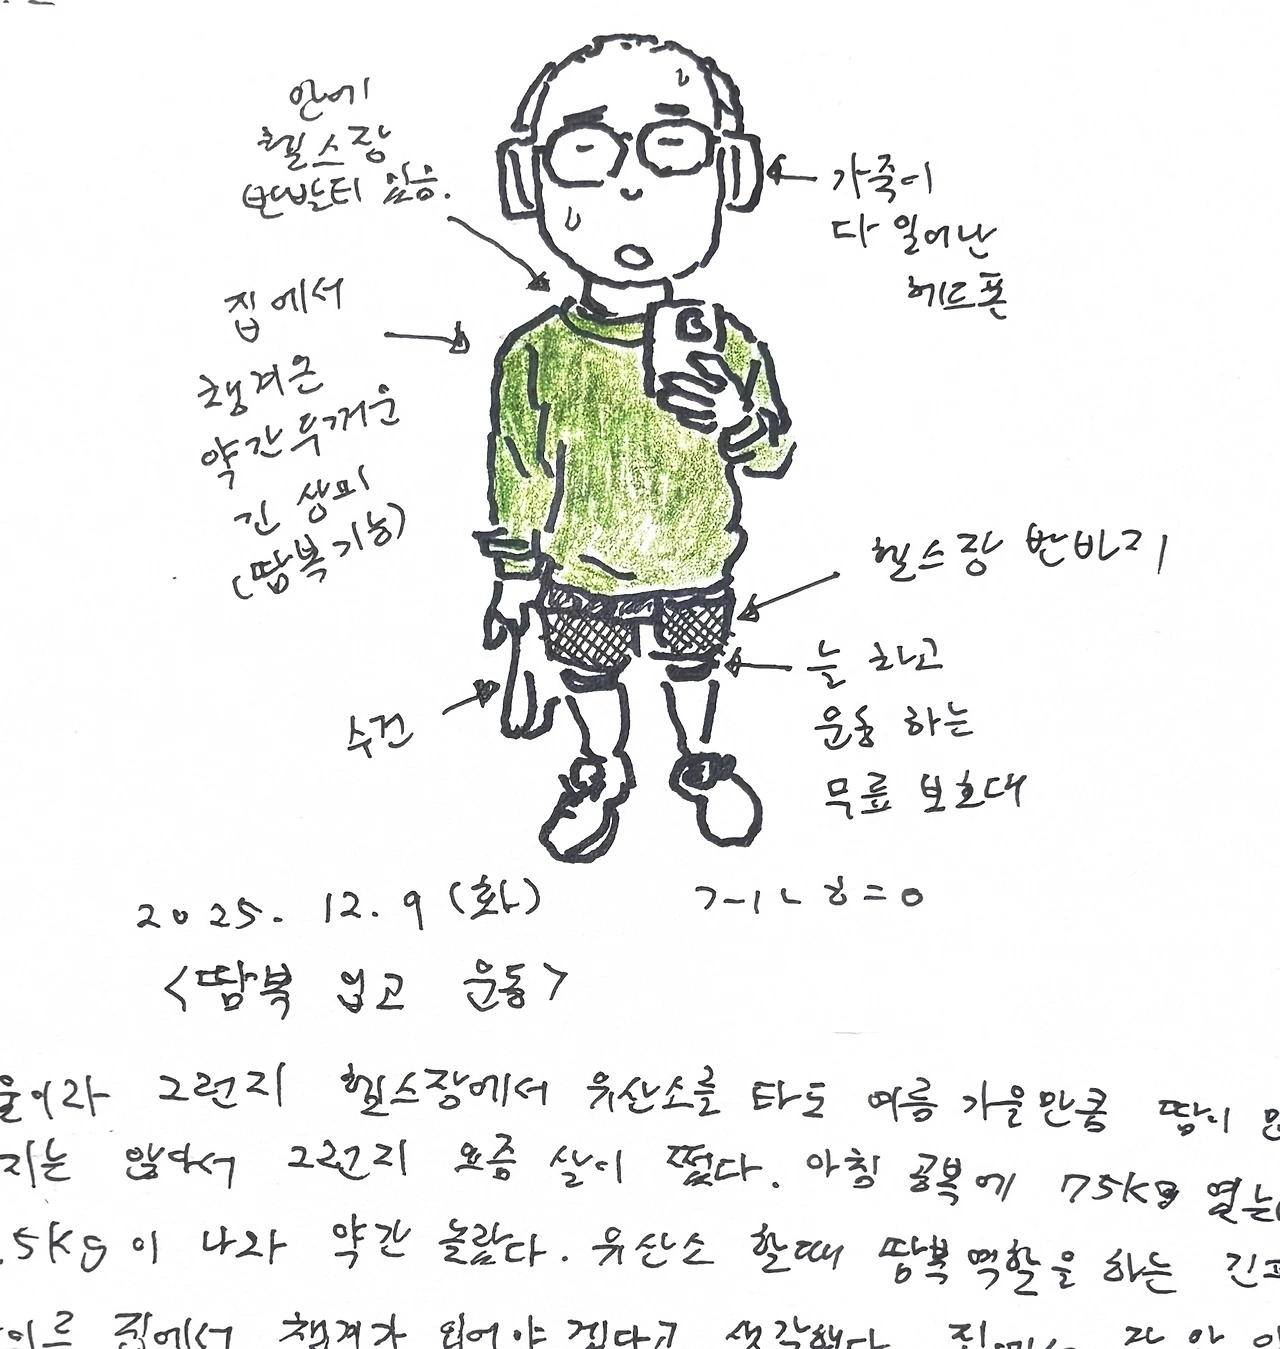 안에
헬스장
반팔티 입음.
가죽이
다 일어난
헤드폰
집에서
챙겨온
약간 두꺼운
긴 상의
(땀복기능)
헬스장 반바지
늘 하고
운동 하는
무릎 보호대
수건
2025. 12. 9 (화)
<땀복 입고 운동>
그런지 헬스장에서 유산소를 타도 여름 가을만큼 땀이
않아서 그런지 요즘 살이 쪘다. 아침 공복에 75kg
.5kg이 나와 약간 놀랐다. 유산소 할때 땀복역할을 하는
집에서 챙겨가 입어야겠다고 생각했다.